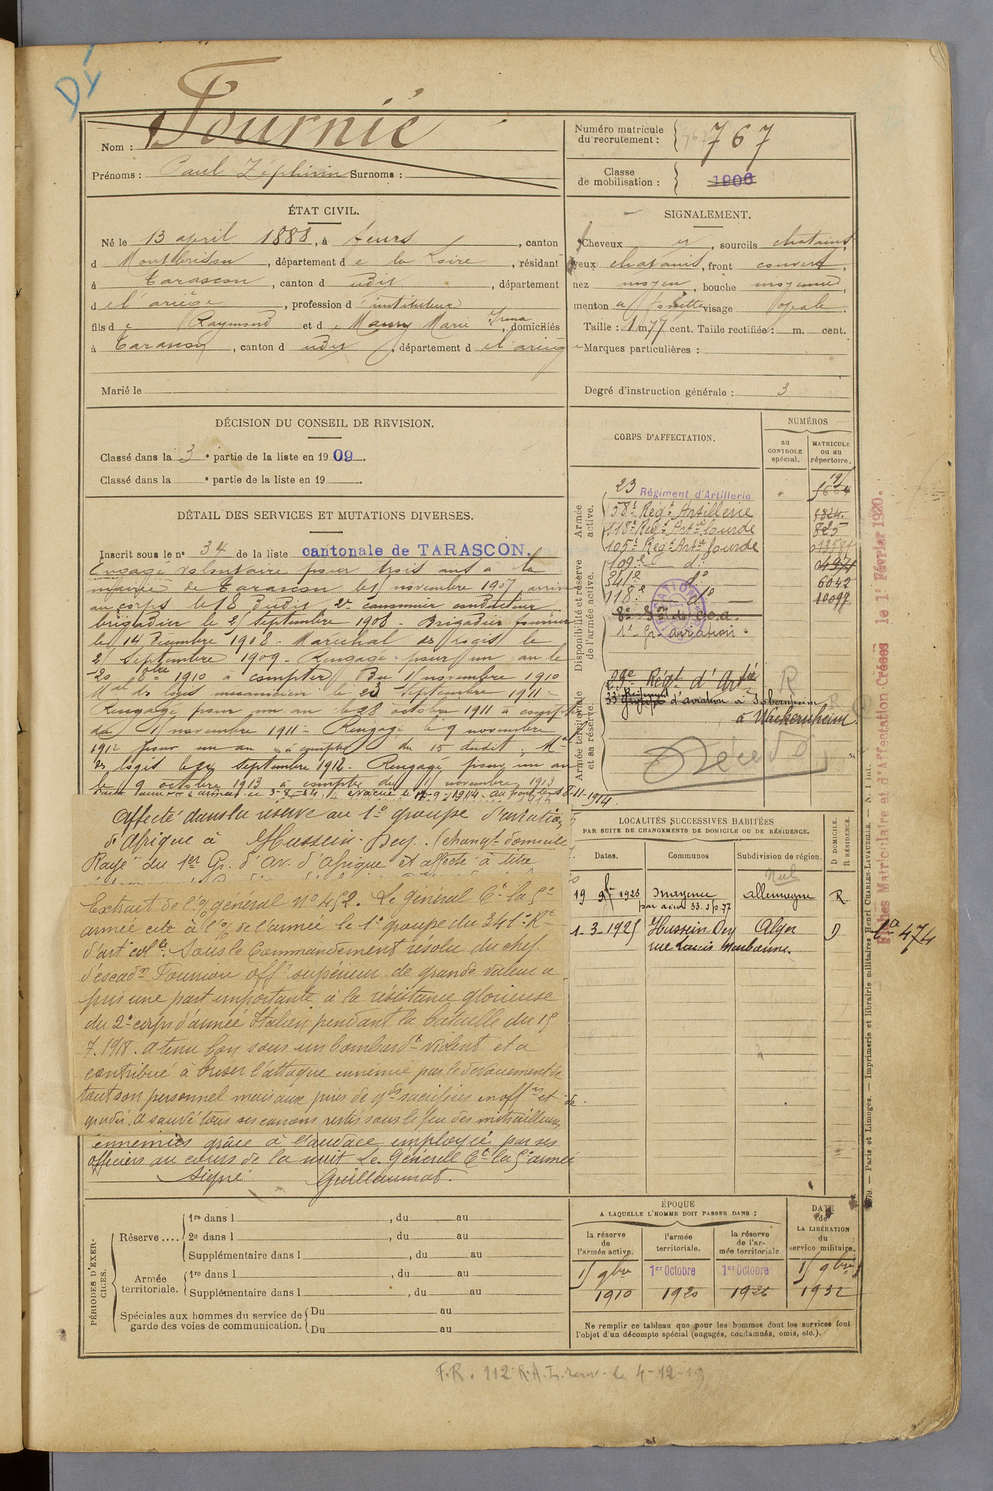 Dy
Nom : Fournié
Prénoms : Paul Zéphirin Surnoms :
Numéro matricule
du recrutement : 767
Classe
de mobilisation : 1906
ÉTAT CIVIL.
Né le 13 april 1888, à Feurs, canton
d Montbrison, département d e la Loire, résidant
à Tarascon, canton d udit, département
d e l'ariège, profession d' instituteur
fils d e Raymond et d e Maury Marie Irma, domiciliés
à Tarascon, canton d udit, département d e l'ariège
Marié le
SIGNALEMENT.
Cheveux, sourcils chatains
yeux chatains, front couvert,
nez moyen, bouche moyenne,
menton à fossette visage ovale.
Taille : 1 m. 77 cent. Taille rectifiée : m. cent.
Marques particulières :
Degré d'instruction générale : 3
DÉCISION DU CONSEIL DE REVISION.
Classé dans la 3e partie de la liste en 1909.
Classé dans la e partie de la liste en 19
DÉTAIL DES SERVICES ET MUTATIONS DIVERSES.
Inscrit sous le no 34 de la liste cantonale de TARASCON.
Engagé volontaire pour trois ans à la
mairie de Tarascon le 1 novembre 1907 arrivé
au corps le 18 dudit, 2e canonnier conducteur
brigadier le 2 Septembre 1908. Brigadier fourrier
le 14 Décembre 1918. Maréchal des logis le
2 Septembre 1909. Rengagé pour un an le
8bre 1910 à compter du 1 novembre 1910
Mal des logis mécanicien le 23 Septembre 1911
Rengagé pour un an le 28 octobre 1911 à compter
du 1 novembre 1911 = Rengagé le 9 novembre
1912 pour un an à compter du 15 dudit. Mal
des logis le Septembre 1912. Rengagé pour un an
le 9 octobre 1913 à compter du 1 novembre 1913
Affecté dans la réserve au 1o groupe d'aviation
d'Afrique à Hussein Dey. (changt domicile
Rayé du 1er Gr. d'av. d'afrique et affecté à titre
Extrait de l'o/ général no 452. Le Général Ct la 5e
armée cite à l'o/ de l'armée le 1o groupe du 341o Rt
d'art col. Sous le Commandement résolu du chef
d'escadn Fournier offr supérieur de grande valeur a
pris une part importante à la résistance glorieuse
du 2o corps d'armée Italien pendant la bataille du 15
7.1918. A tenu bon sous un bombardt violent et a
contribué à briser l'attaque ennemie par le dévouement de
tout son personnel mais aux prix de gds sacrifices en offrs et
gradés. A sauvé tous ses canons restés sous le feu des mitrailleuses
ennemies grâce à l'audace employée par ses
officiers au cours de la nuit. Le Général Ct la 5e armée
Signé Guillaumat.
CORPS D'AFFECTATION.
NUMÉROS
au
CONTROLE
spécial.
MATRICULE
ou au
répertoire.
Armée
active.
23 Régiment d'Artillerie
58e Regt Artillerie
118e Regt Artie lourde 825
105e Regt Artie lourde
Disponibilité et réserve
de l'armée active.
109e do
341e do 6042
118e do 10099
1o Gr. aviation.
Armée territoriale
et sa réserve.
29e Regt d'Artie
33 Régiment d'aviation
à Wackernheim
Décédé
R
Fiches Matriculaire et d'Affectation Créées le 1er Février 1920.
No 474
LOCALITÉS SUCCESSIVES HABITÉES
PAR SUITE DE CHANGEMENTS DE DOMICILE OU DE RÉSIDENCE.
Dates.
Communes
Subdivision de région.
D DOMICILE.
R RÉSIDENCE.
Nul
19 1923 Mayence Allemagne R.
1.3.1925 Hussein Dey Alger D
PÉRIODES D'EXERCICES.
Réserve ....
1re dans l , du au
2e dans l , du au
Supplémentaire dans l , du au
Armée
territoriale.
1re dans l , du au
Supplémentaire dans l , du au
Spéciales aux hommes du service de
garde des voies de communication.
Du au
Du au
ÉPOQUE
A LAQUELLE L'HOMME DOIT PASSER DANS :
la réserve
de
l'armée active.
l'armée
territoriale.
la réserve
de l'ar-
mée territoriale
DATE
de
LA LIBÉRATION
du
service militaire.
15 9bre 1910
1er Octobre 1920
1er Octobre 1926
15 9bre 1932
Ne remplir ce tableau que pour les hommes dont les services font
l'objet d'un décompte spécial (engagés, condamnés, omis, etc.).
Paris et Limoges. — Imprimerie et librairie militaires Henri CHARLES-LAVAUZELLE.
F.R. 112 R.A.L. le 4-12-19